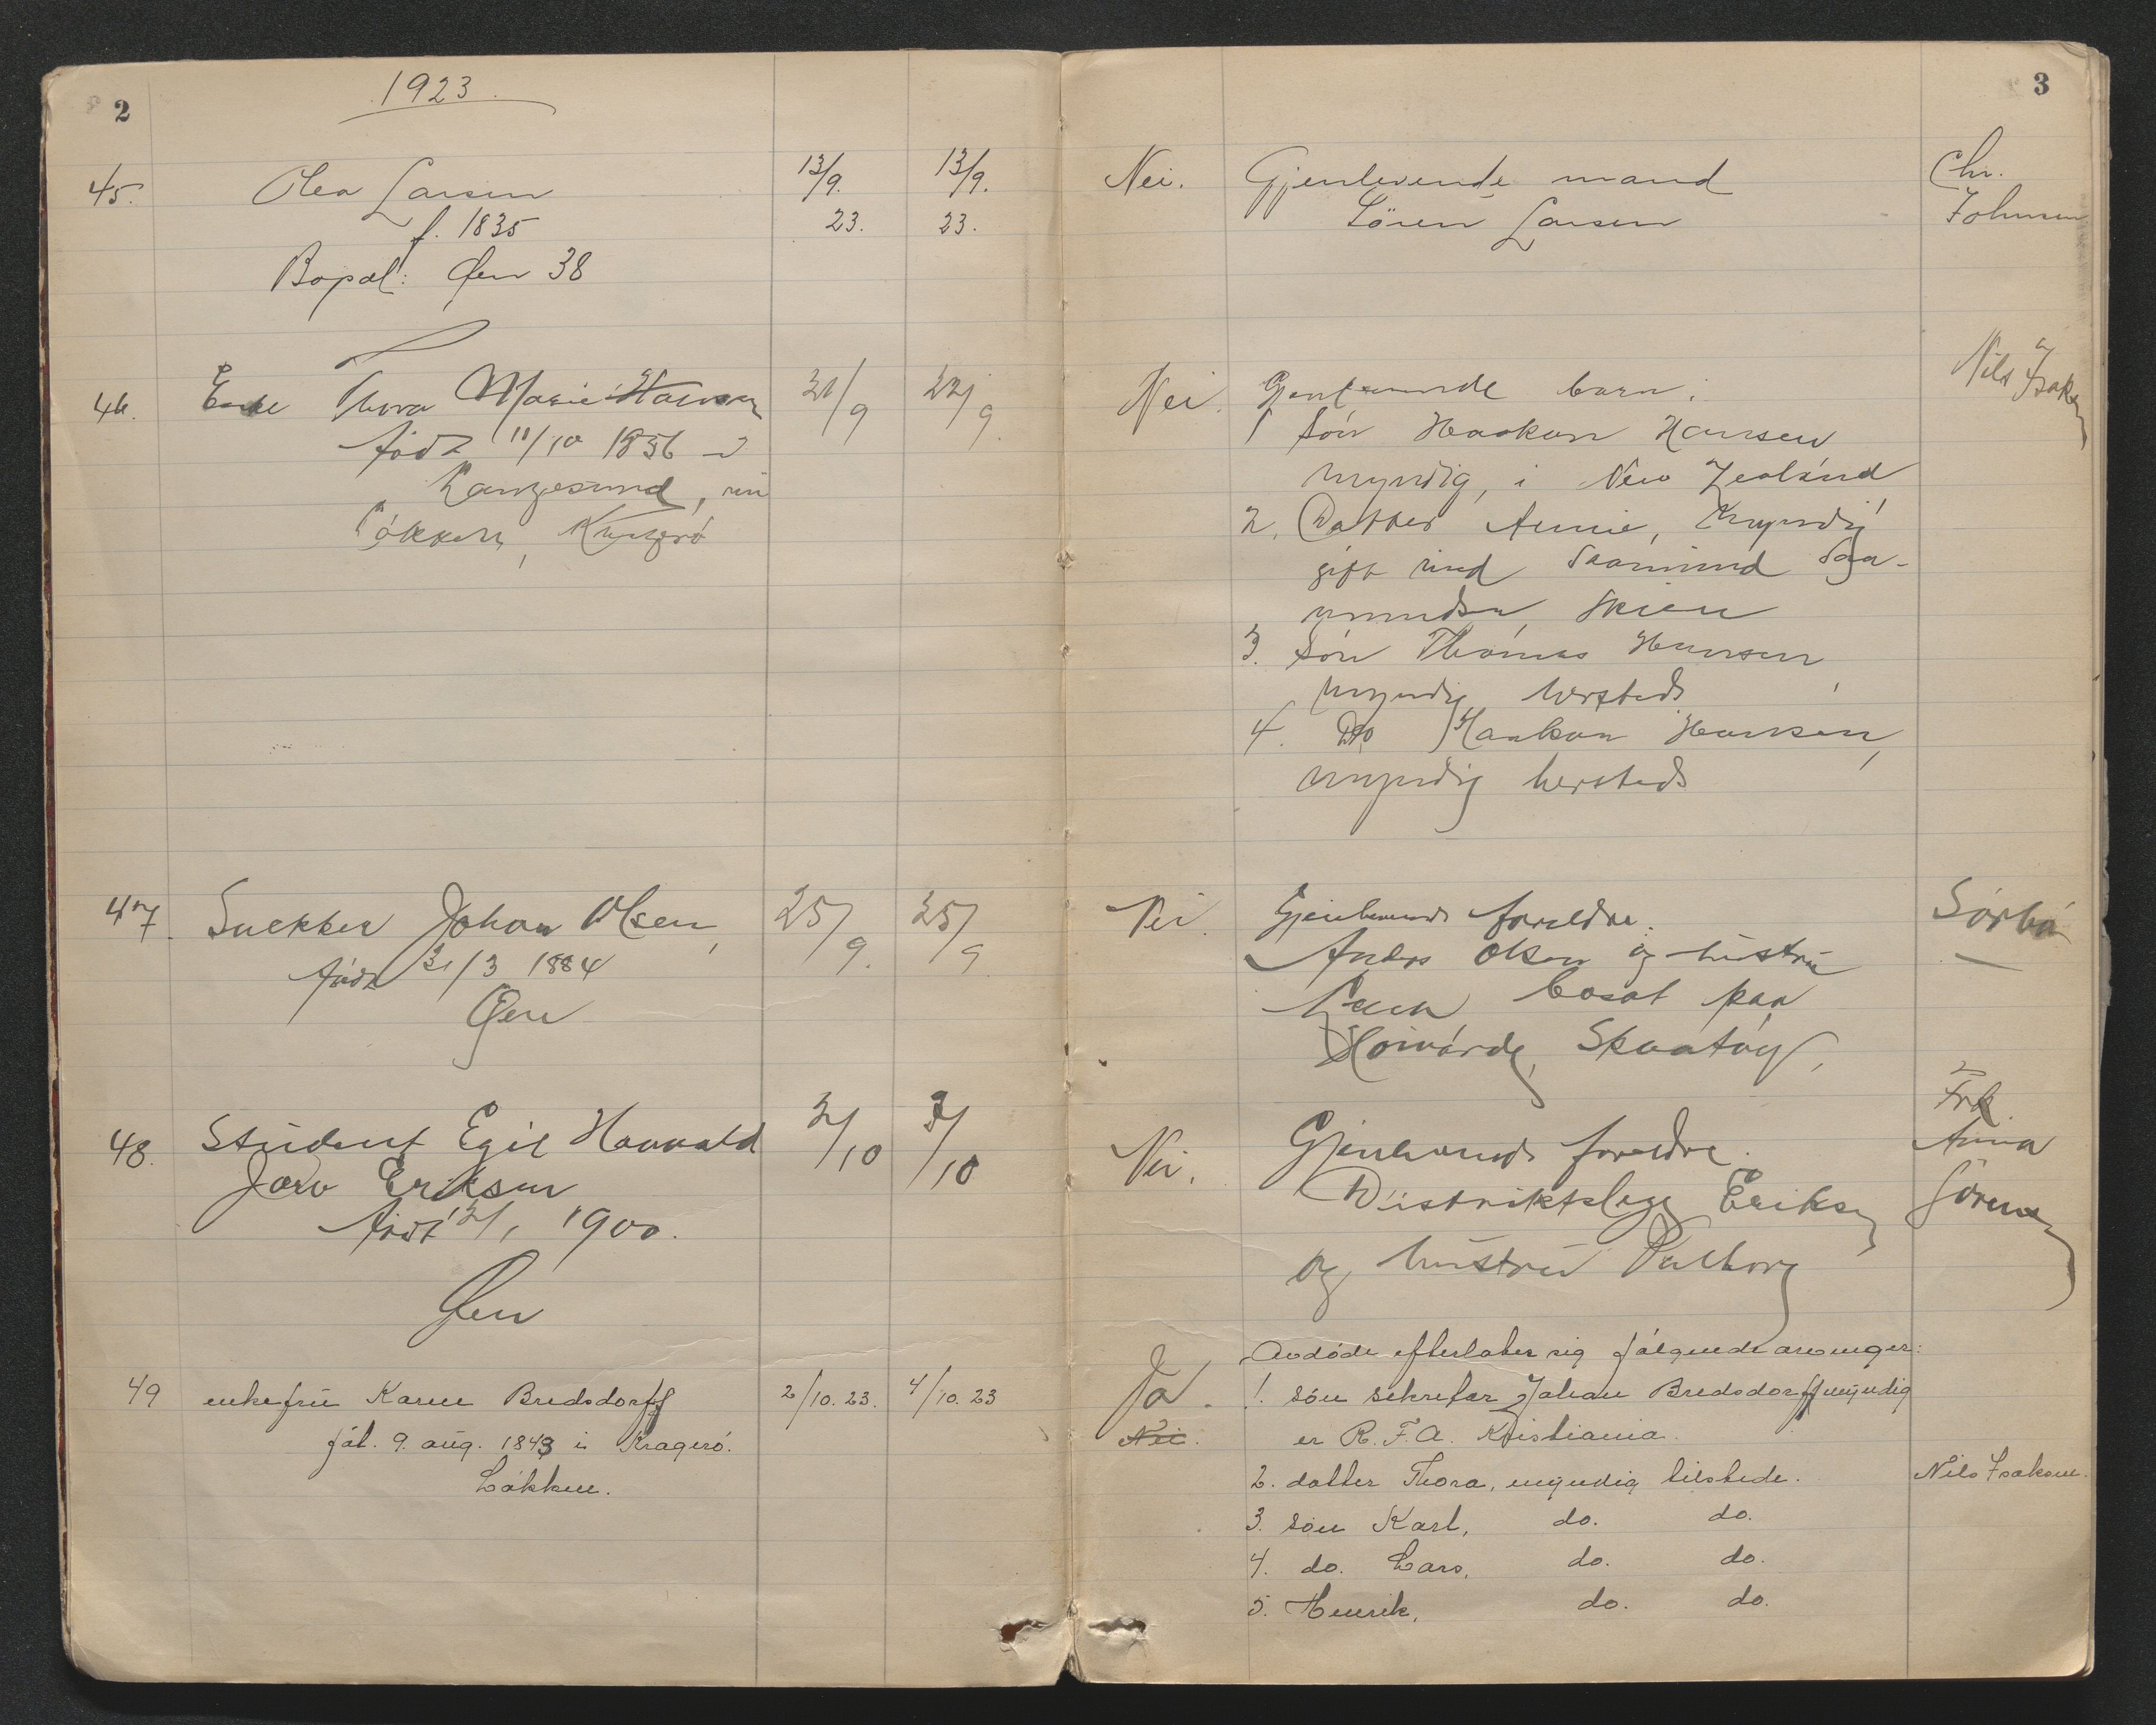 2
1923.
45.
Olea Larsen
f. 1835
Bopæl: Øen 38
13/9. 23.
13/9. 23.
46.
Enke Thora Marie Hansen
född 11/10 1856 i
Langesund,
Løkken, Kragerø
21/9
22/9.
47.
Snekker Johan Olsen,
född 31/3 1884
Øen
25/9.
25/9
48.
Student Egil Havvald
Jarv Eriksen
född 21/1 1900.
Øen
2/10
3/10
49
enkefru Karen Bredsdorff
föd. 9. aug. 1843 i Kragerö.
Lökken.
2/10. 23.
4/10. 23
3
Nei.
Gjenlevende mand
Sören Larsen
Chr.
Johnsen
Nei.
Gjenlevende barn:
1 Sön Haakon Hansen
myndig, i New Zealand
2. Datter Annie, myndig
gift med Saamund Saa-
mundsen, Skien
3. Sön Thomas Hansen,
myndig hersteds
4. Do Haakon Hansen,
myndig hersteds
Nils Isaksen
Nei.
Gjenlevende foreldre.
Anders Olsen og hustru
bosat paa
Skaatöy.
Sörbö
Nei.
Gjenlevende foreldre.
Distriktslege Eriksen
og hustru Valborg
Frk.
Anna
Sörensen
Ja.
Nei.
Avdöde efterlater sig fölgende arvinger:
1. sön sekretær Johan Bredsdorff myndig
er R. F. A. Kristiania.
2. datter Thora, myndig tilstede.
3. sön Karl, do. do.
4. do. Lars, do. do.
5. Henrik, do. do.
Nils Isaksen.